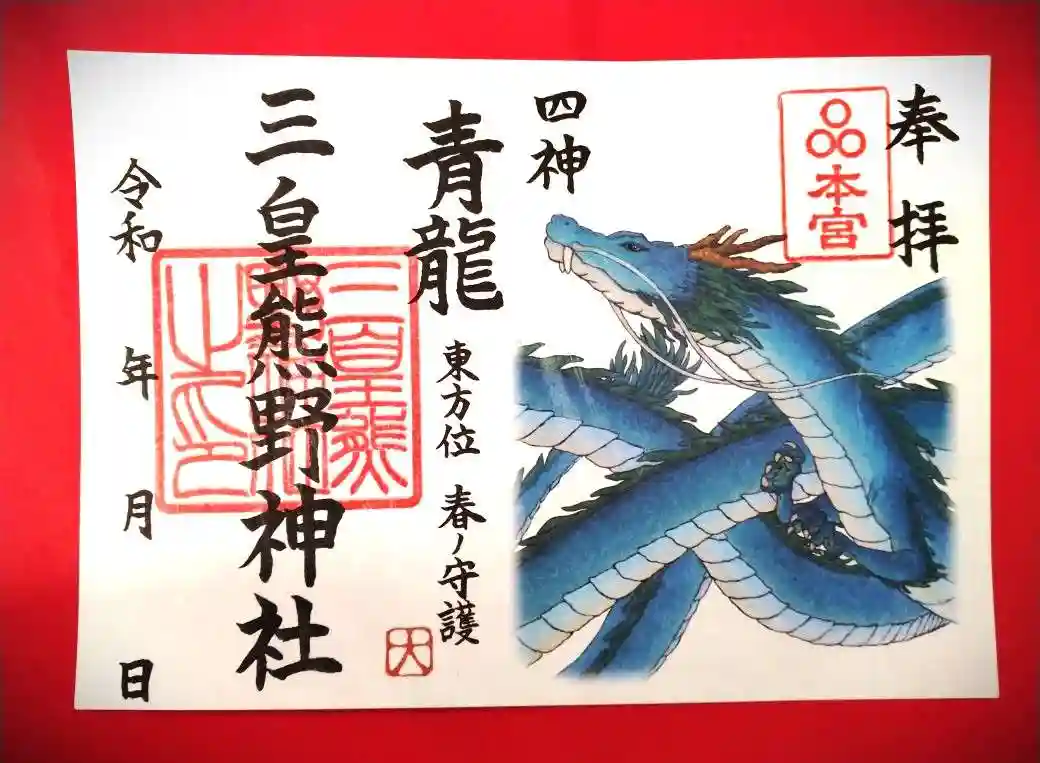 奉拝
本宮
四神
青龍
東方位 春ノ守護
三皇熊野神社
三皇熊
之印
令和 年 月 日